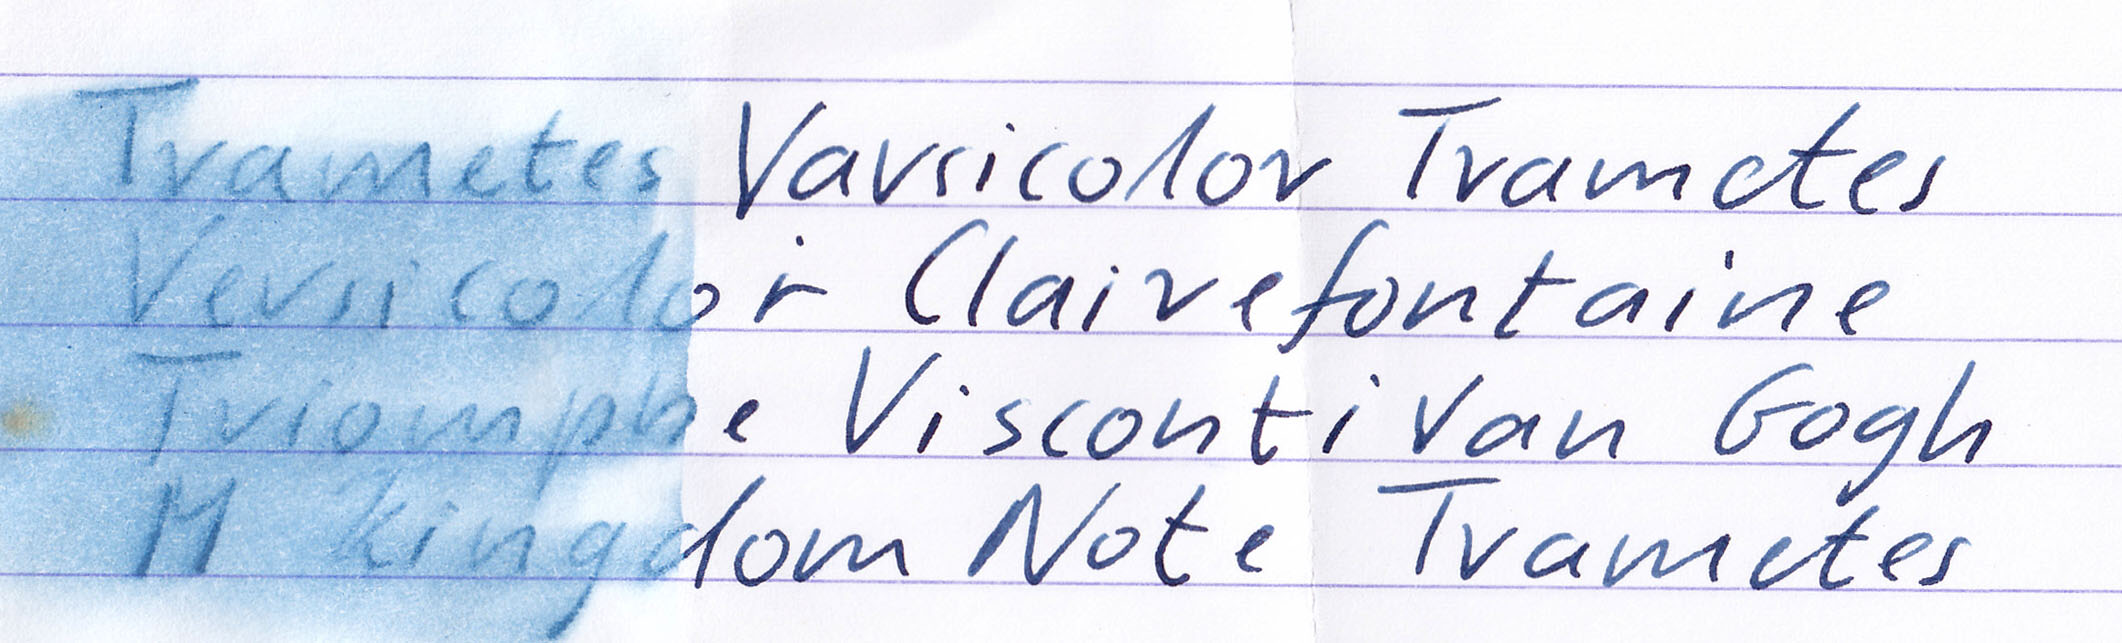 Trametes Varsicolor Trametes
Versicolor Clairefontaine
Triomphe Visconti Van Gogh
M Kingdom Note Trametes